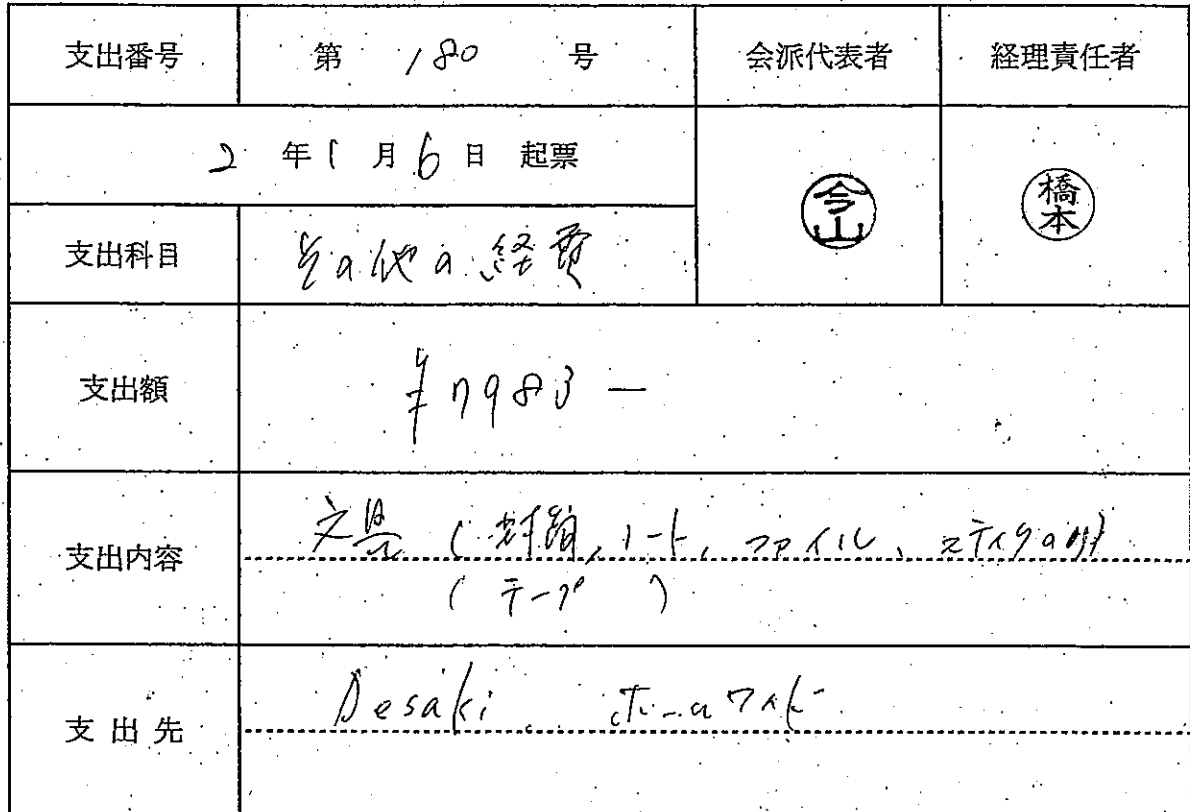 支出番号 第 180 号 会派代表者 経理責任者
2 年 1 月 6 日 起票
今山
橋本
支出科目 その他の経費
支出額 ¥7983-
支出内容 文具(封筒,ノート,ファイル,スティックのり
(テープ)
支出先 Desaki ホームワイド